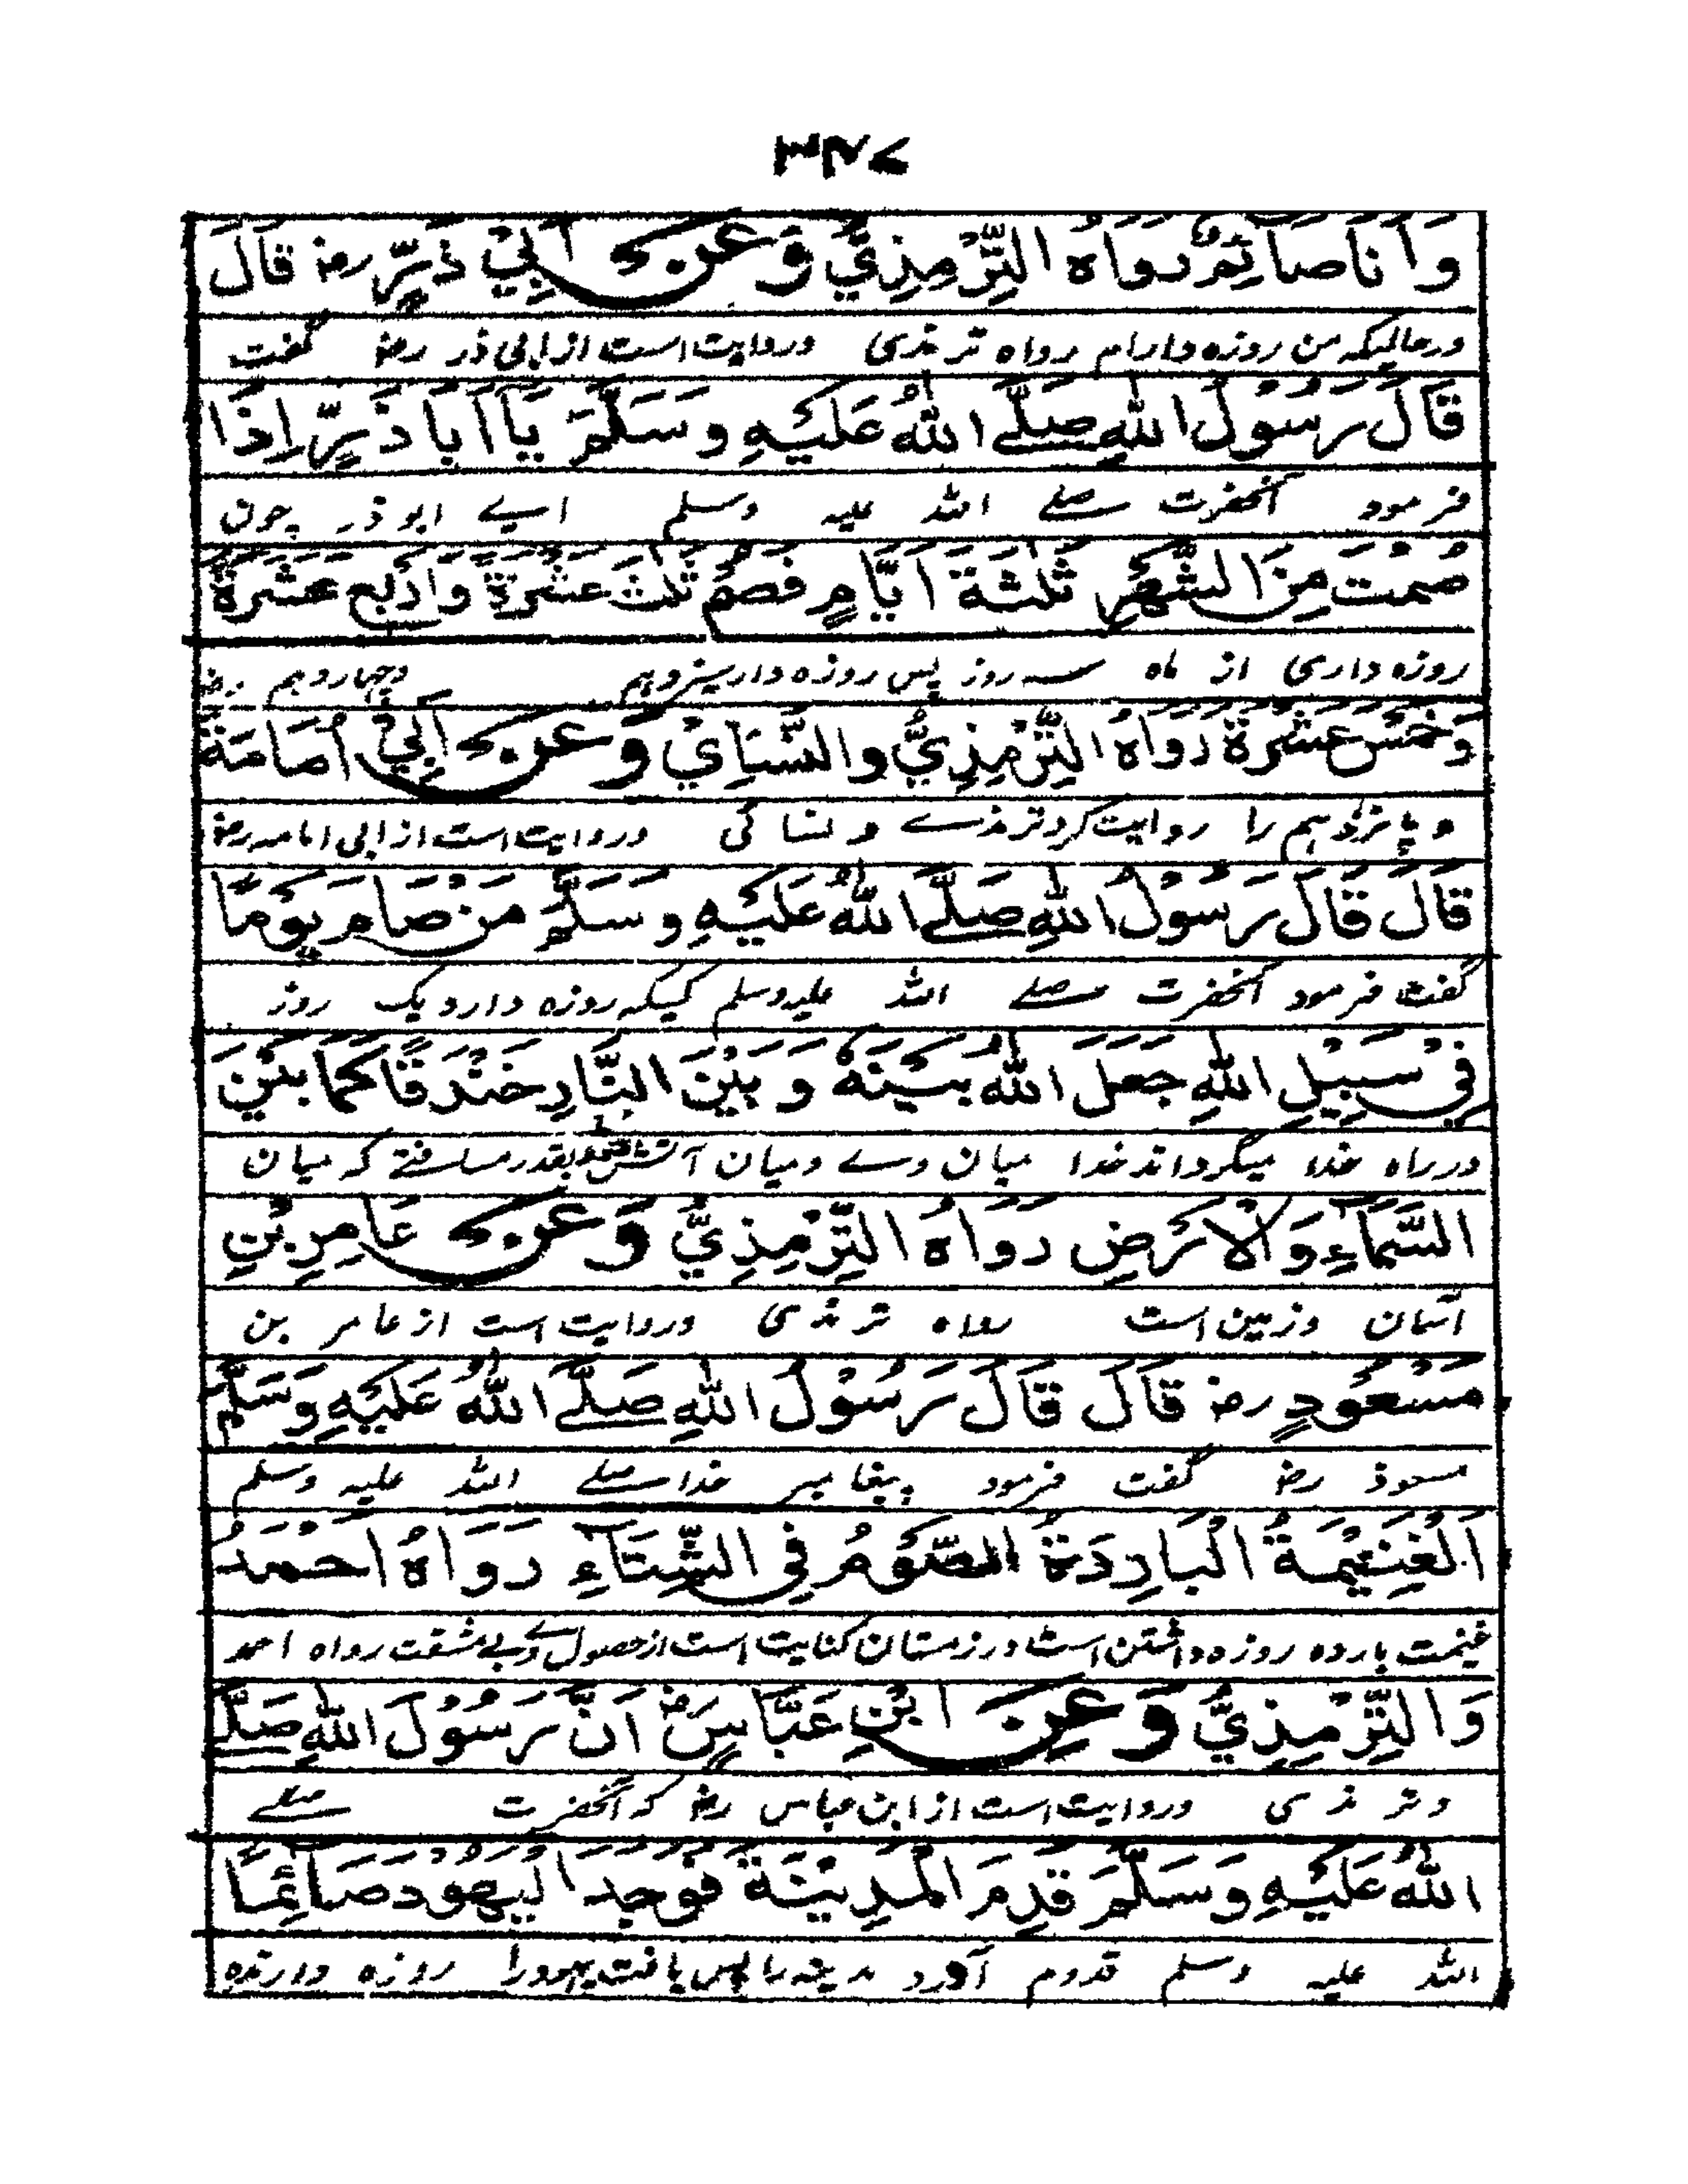 وَأَنَا صَائِمٌ رَوَاهُ التِّرْمِذِيُّ وَعَنْ اَبِيْ ذَرٍّ رض قَالَ
درحالیکه من روزه دارام رواه ترمذی وروایت است از ابی ذر رض گفت
قَالَ رَسُوْلُ اللهِ صَلَّے اللهُ عَلَيْهِ وَسَلَّمَ يَا اَبَا ذَرٍّ اِذَا
فرمود آنحضرت صلے الله علیه وسلم اے ابو ذر چون
صُمْتَ مِنَ الشَّهْرِ ثَلٰثَةَ اَيَّامٍ فَصُمْ ثَلٰثَ عَشْرَةَ وَاَرْبَعَ عَشْرَةَ
روزه داری از ماه سه روز پس روزه دار سیزدهم وچهاردهم
وَخَمْسَ عَشْرَةَ رَوَاهُ التِّرْمِذِيُّ وَالنَّسَائِيْ وَعَنْ اَبِيْ اُمَامَةَ
و پانزدهم را روایت کرد ترمذے و نسائی وروایت است از ابی امامه رض
قَالَ قَالَ رَسُوْلُ اللهِ صَلَّے اللهُ عَلَيْهِ وَسَلَّمَ مَنْ صَامَ يَوْمًا
گفت فرمود آنحضرت صلے الله علیه وسلم کسیکه روزه دارد یک روز
فِيْ سَبِيْلِ اللهِ جَعَلَ اللهُ بَيْنَهُ وَبَيْنَ النَّارِ خَنْدَقًا كَمَا بَيْنَ
در راه خدا میگرداند خدا میان وے ومیان آتش بقدر مسافتے که میان
السَّمَاءِ وَالْاَرْضِ رَوَاهُ التِّرْمِذِيُّ وَعَنْ عَامِرِ بْنِ
آسمان وزمین است رواه ترمذی وروایت است از عامر بن
مَسْعُوْدٍ رض قَالَ قَالَ رَسُوْلُ اللهِ صَلَّے اللهُ عَلَيْهِ وَسَلَّمَ
مسعود رض گفت فرمود پیغامبر خدا صلے الله علیه وسلم
اَلْغَنِيْمَةُ الْبَارِدَةُ الصَّوْمُ فِي الشِّتَاءِ رَوَاهُ اَحْمَدُ
غنیمت بارده روزه داشتن است در زمستان کنایت است از حصول وے بے مشقت رواه احمد
وَالتِّرْمِذِيُّ وَعَنْ ابْنِ عَبَّاسٍ رض اَنَّ رَسُوْلَ اللهِ صَلَّے
وترمذی وروایت است از ابن عباس رض که آنحضرت صلے
اللهُ عَلَيْهِ وَسَلَّمَ قَدِمَ الْمَدِيْنَةَ فَوَجَدَ الْيَهُوْدَ صَائِمًا
الله علیه وسلم قدوم آورد مدینه را پس یافت یهود را روزه دارنده